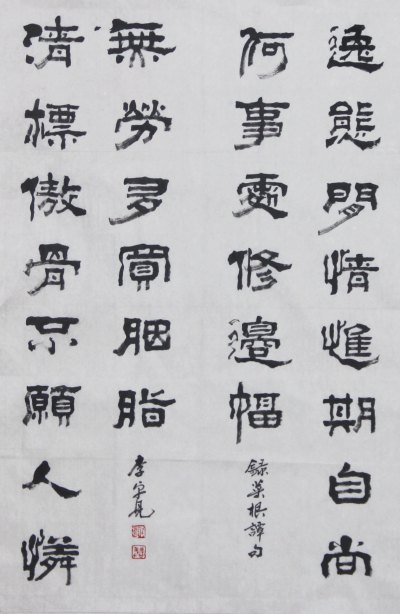 逸態閒情惟期自尚
何事處修邊幅
錄菜根譚句
清標傲骨不願人憐
無勞多買胭脂